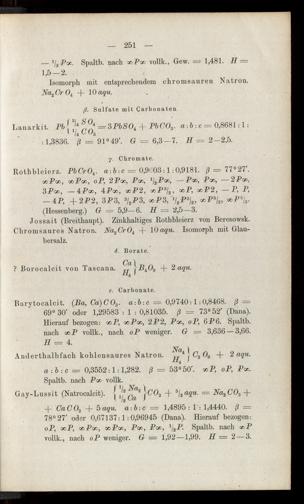 — 251 —
— ½ P∞. Spaltb. nach ∞P∞ vollk., Gew. = 1,481. H =
1,5—2.
Isomorph mit entsprechendem chromsauren Natron.
Na₂ Cr O₄ + 10 aqu.
β. Sulfate mit Carbonaten
Lanarkit. Pb { ¾ S O₄ ¼ C O₃ = 3 Pb S O₄ + Pb C O₃. a : b : c = 0,8681 : 1 :
: 1,3836. β = 91° 49'. G = 6,3—7. H = 2—2,5.
γ. Chromate.
Rothbleierz. Pb Cr O₄. a : b : c = 0,9603 : 1 : 0,9181. β = 77° 27'.
(Hessenberg.) G = 5,9—6. H = 2,5—3.
Jossait (Breithaupt). Zinkhaltiges Rothbleierz von Berosowsk.
Chromsaures Natron. Na₂ Cr O₄ + 10 aqu. Isomorph mit Glau-
bersalz.
δ. Borate.
? Borocalcit von Tascana. Ca H₄ } B₄ O₉ + 2 aqu.
ε. Carbonate.
Barytocalcit. (Ba, Ca) C O₃. a : b : c = 0,9740 : 1 : 0,8468. β =
69° 30' oder 1,29583 : 1 : 0,81035. β = 73° 52' (Dana).
Hierauf bezogen: ∞P, ∞P∞, 2P2, P∞, oP, 6P6. Spaltb.
nach ∞P vollk., nach oP weniger. G = 3,636—3,66.
H = 4.
Anderthalbfach kohlensaures Natron. Na₄ H₄ } C₃ O₈ + 2 aqu.
a : b : c = 0,3552 : 1 : 1,282. β = 53° 50'. ∞P, oP, P∞.
Spaltb. nach P∞ vollk.
Gay-Lussit (Natrocalcit). { ½ Na₂ ½ Ca } C O₃ + ⁵⁄₂ aqu. = Na₂ C O₃ +
+ Ca C O₃ + 5 aqu. a : b : c = 1,4895 : 1 : 1,4440. β =
78° 27' oder 0,67137 : 1 : 0,96945 (Dana). Hierauf bezogen:
oP, ∞P, ∞P∞, ∞P∞, P∞, P∞, ½P. Spaltb. nach ∞P
vollk., nach oP weniger. G = 1,92—1,99. H = 2—3.